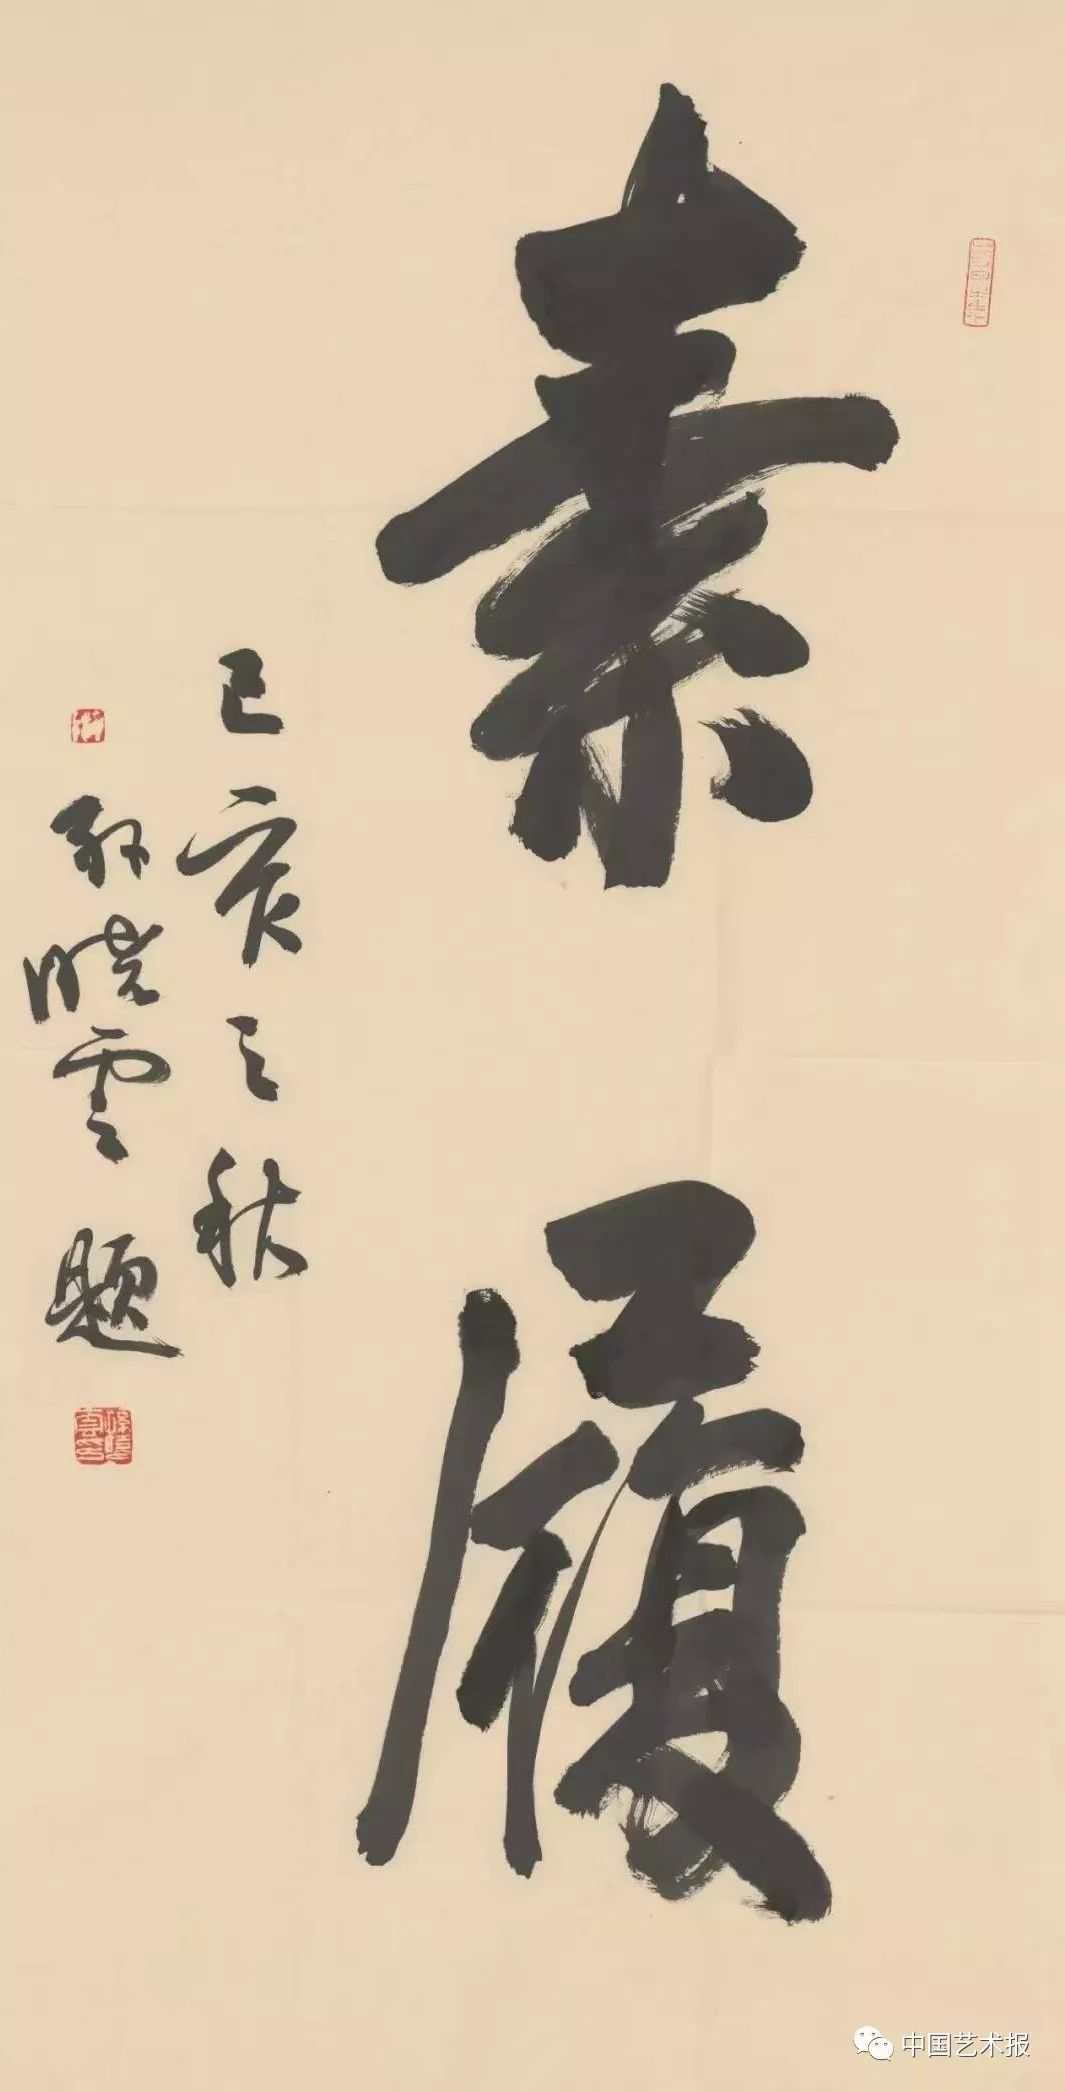 素履
己亥之秋
孙晓云题
中国艺术报